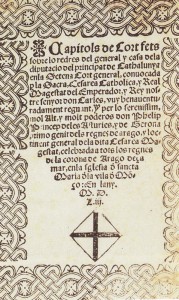 Capitols de Cort fets
sobre los redres del general y casa dela
diputacio del principat de Cathalunya
en la Setena Cort general, conuocada
p la Sacra, Cesarea Catholica, y Real
Magestat del Emperador, y Rey nos
tre senyor don Carlos, uuy benauentu-
radament regnant. Y per lo serenissim,
mol Alt, y molt poderos don Phelip
Princep deles Asturies, y de Gerona
primo genit del regnes de arago, y loc-
tinent general dela dita Cesarea Ma-
gestat, celebrada a tots los regnes
dela corona de Arago dela
mar, en la sglesia d sancta
Maria dla vila d Mōço
: En lany.
M. D.
L iii.